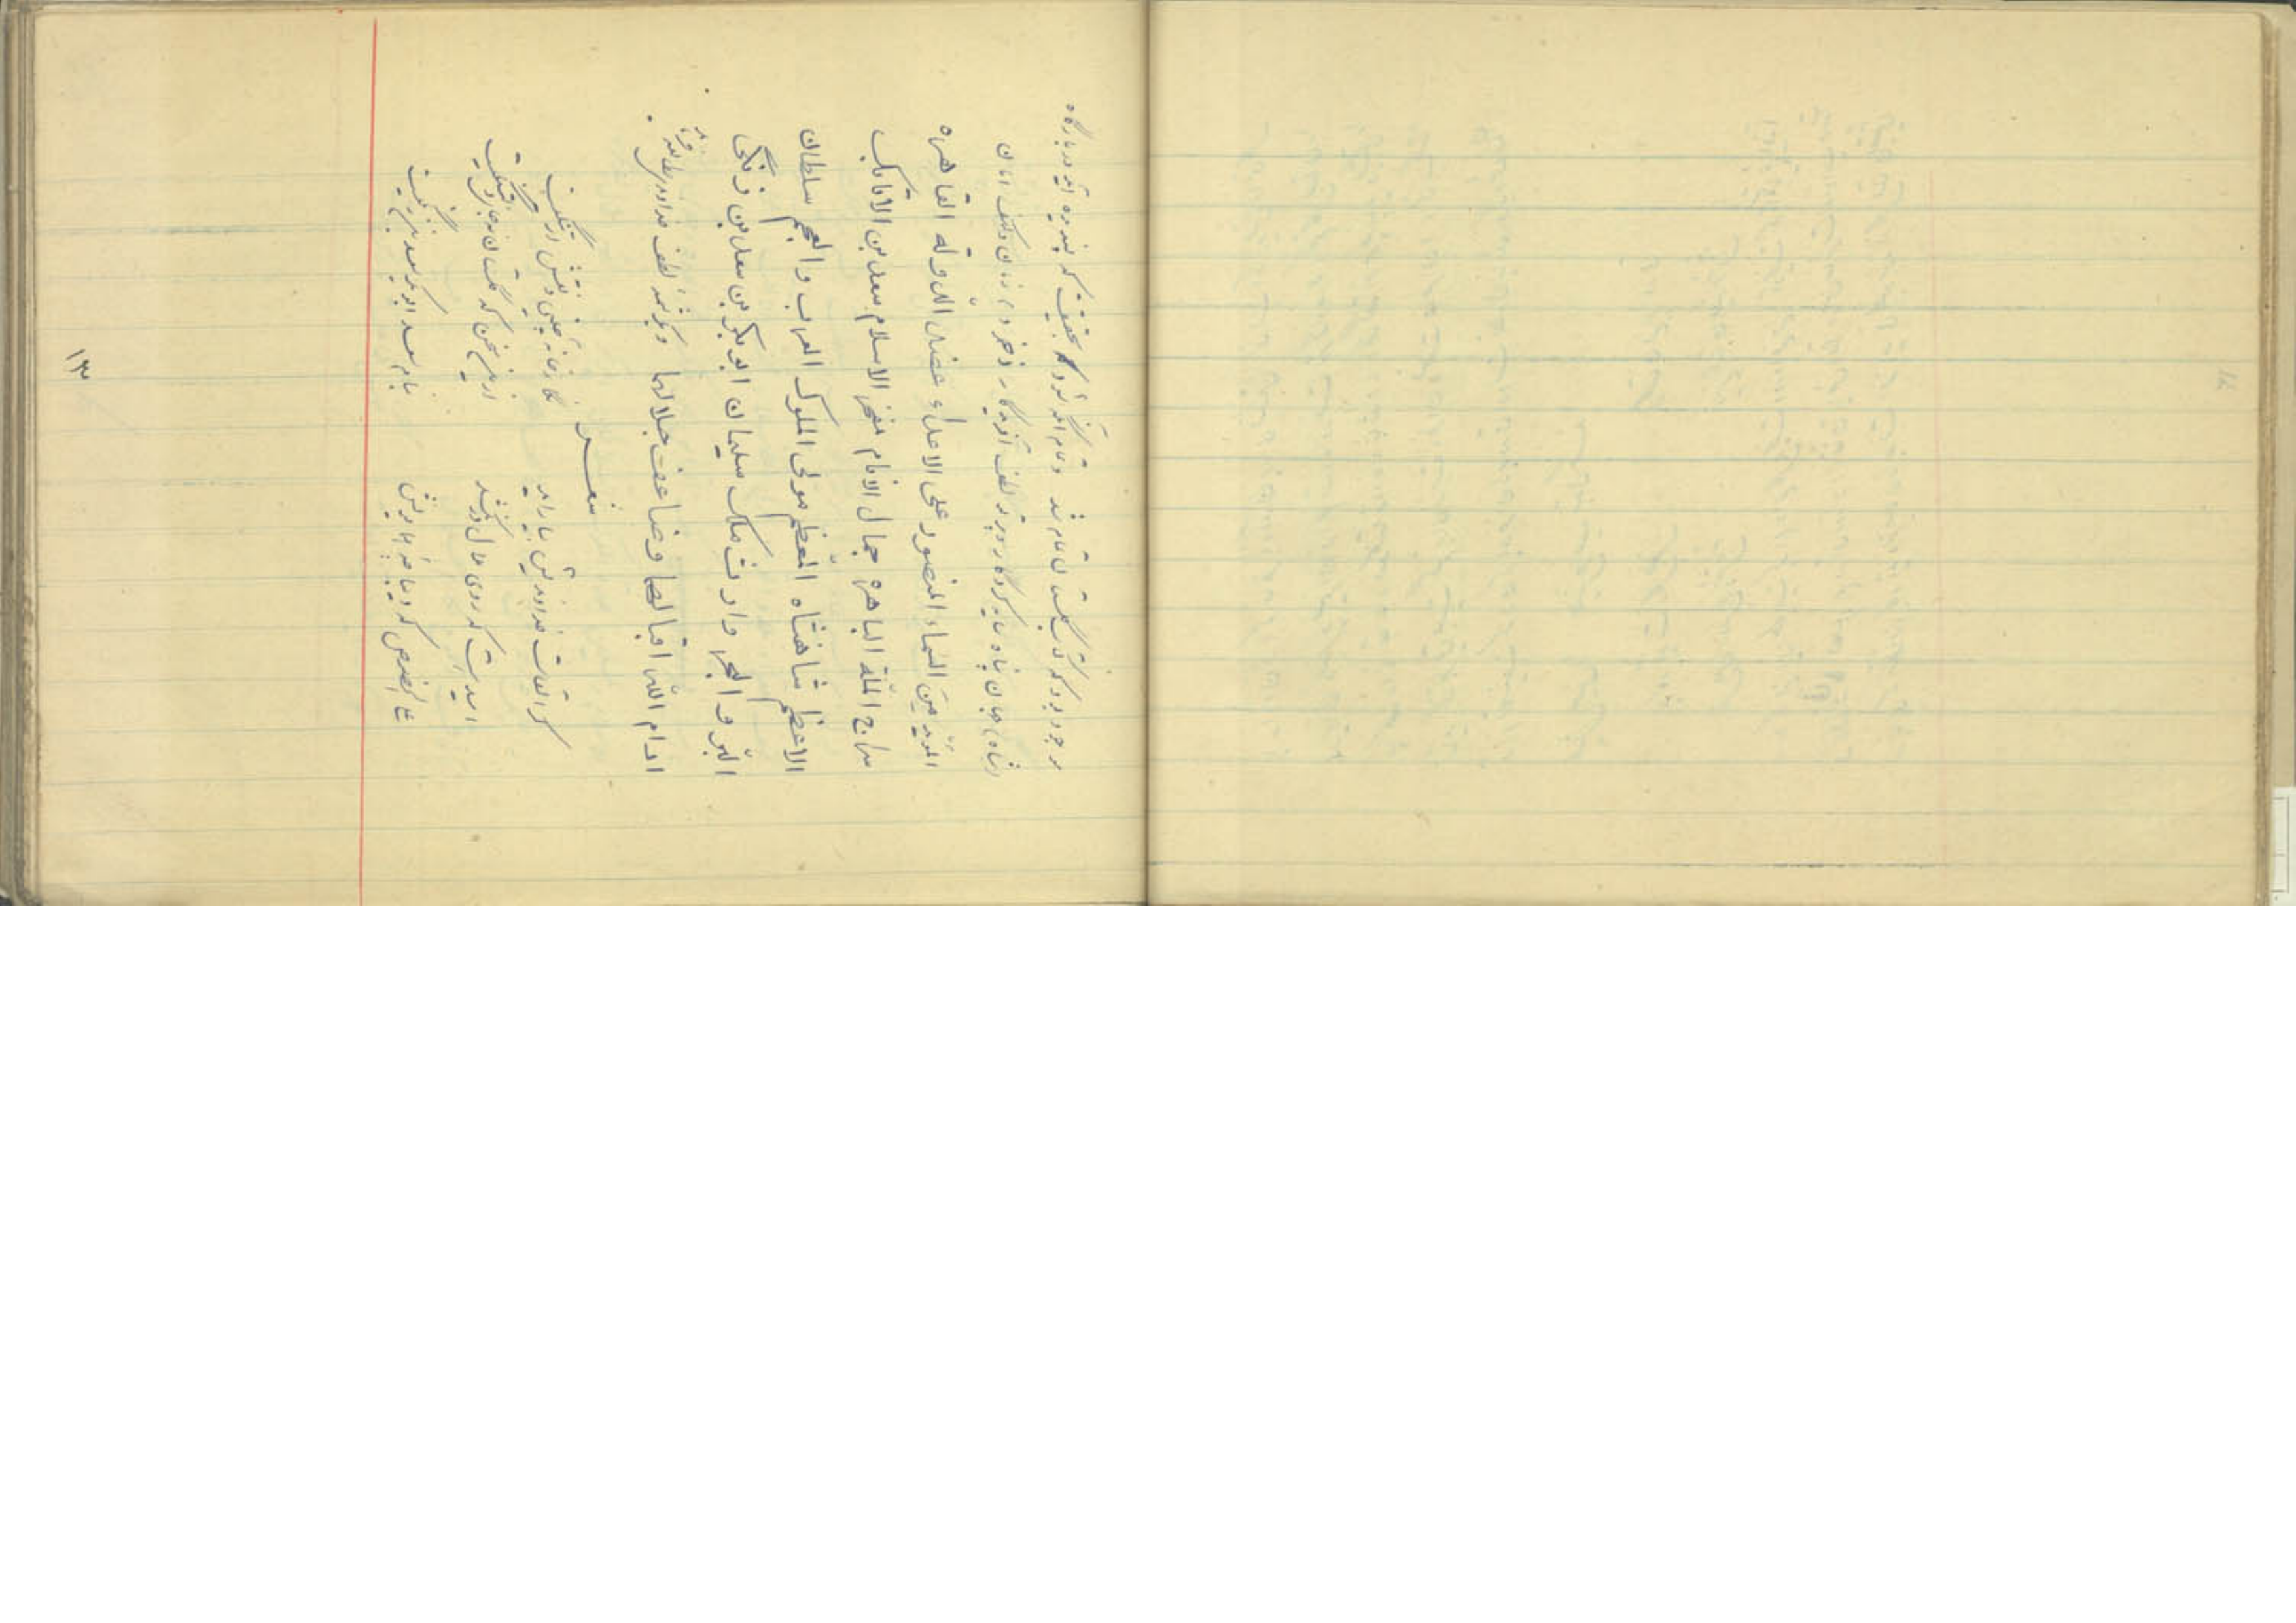 موجود بود که کتاب گلستان تمام شد و تمام آنگه شود بحقیقت که پسندیده آید در بارگاه
شاه جهان پناه سایه کردگار و پرتو لطف آفریدگار ذخر زمان و کهف امان
المؤید من السّماء المنصور علی الاعداء عضد الدّولة القاهره
سراج الملّة الباهره جمال الانام مفخر الاسلام سعد بن الاتابک
الاعظم شاهنشاه المعظّم مولی الملوک العرب والعجم سلطان
البرّ والبحر وارث ملک سلیمان ابوبکر بن سعد بن زنگی
ادام الله اقبالهما وضاعف جلالهما و بکرشمه لطف خداوندی مطالعه فرماید
شعر
گر التفات خداوندیش بیاراید نگارخانه چینی و نقش ارتنگیست
امیدست که روی ملال درنکشد ازین سخن که گلستان نه جای دلتنگیست
علی الخصوص که دیباچه همایونش بنام سعد ابوبکر سعد بن زنگیست
۱۳